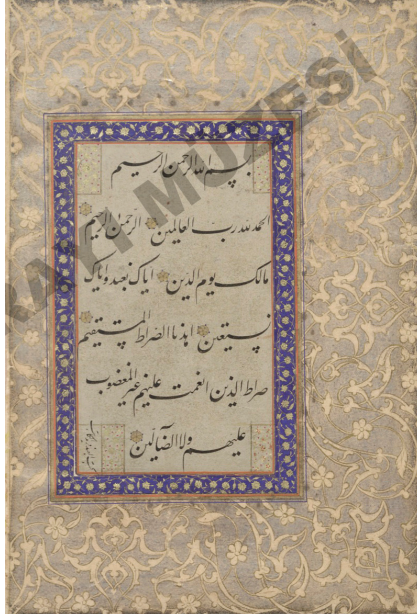 بسم الله الرحمن الرحيم
الحمد لله رب العالمين الرحمن الرحيم
مالك يوم الدين اياك نعبد واياك
نستعين اهدنا الصراط المستقيم
صراط الذين انعمت عليهم غير المغضوب
عليهم ولا الضالين
MÜZESİ